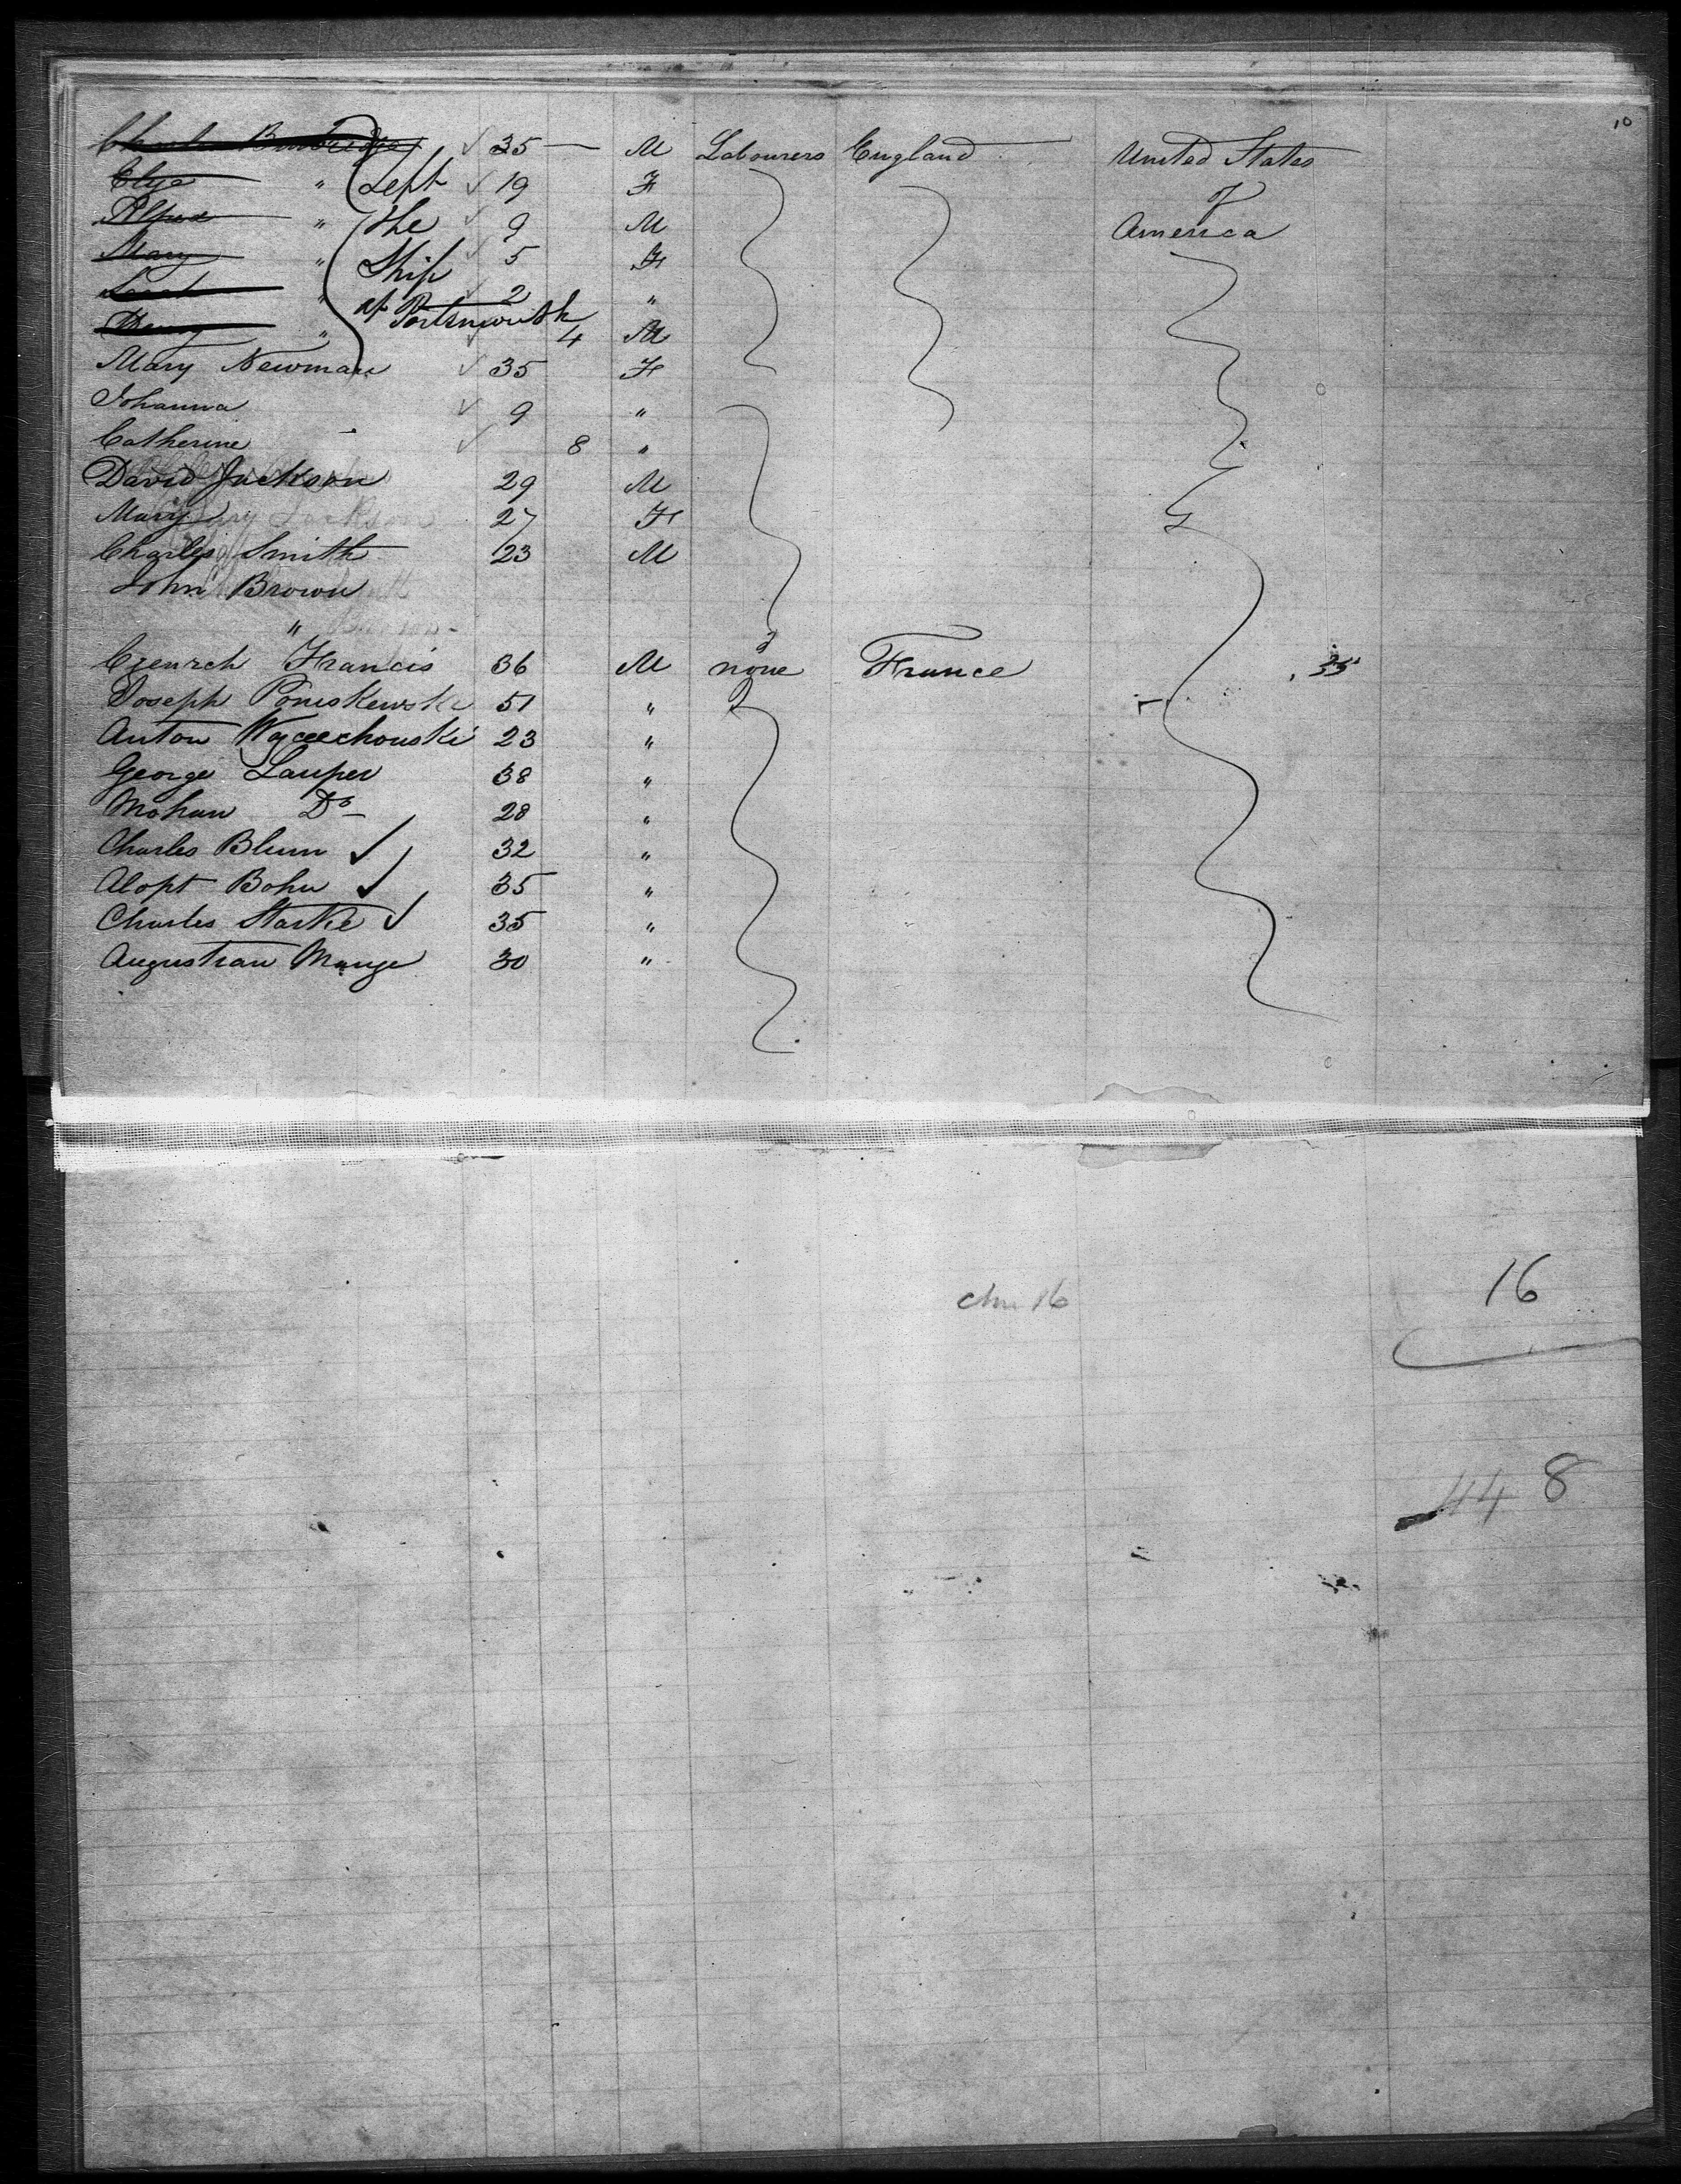 10
Charles Burbridge ✓ 35 — M Labourers England United States
Elija " Left ✓ 19 F of
Alfred " the ✓ 9 M America
Mary " Ship ✓ 5 F
Sarah " at Portsmouth ✓ 2 "
Henry " ✓ 4 M
Mary Newman ✓ 35 F
Johanna ✓ 9 "
Catherine ✓ 8 "
David Jackson 29 M
Mary 27 F
Charles Smith 23 M
John Brown
"
Francis 36 M none France
Joseph Poniskewski 51 "
Anton 23 "
George Lauper 38 "
Mohan Do 28 "
Charles Blum ✓ 32 "
Alopt Bohn ✓ 35 "
Charles Starke ✓ 35 "
Augustrau Mange 30 "
16
16
44 8